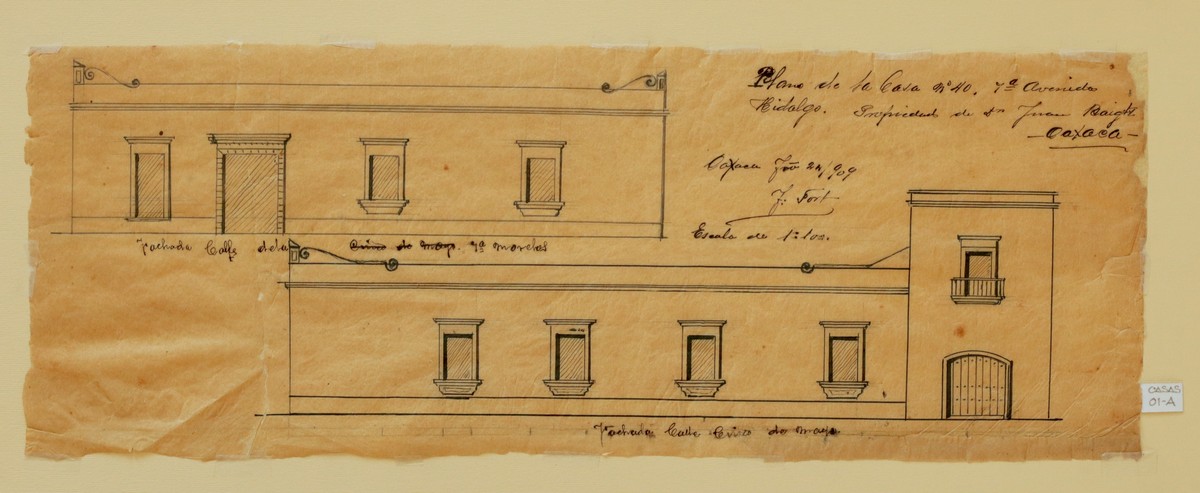 Plano de la Casa Nº 40. 7ª Avenida
Hidalgo. Propiedad de Sr Juan Baigts.
Oaxaca
Oaxaca 24/909
J. Fort
Escala de 1:100.
Fachada Calle de la Cinco de Mayo. 7ª Morelos
Fachada Calle Cinco de Mayo
CASAS
01-A